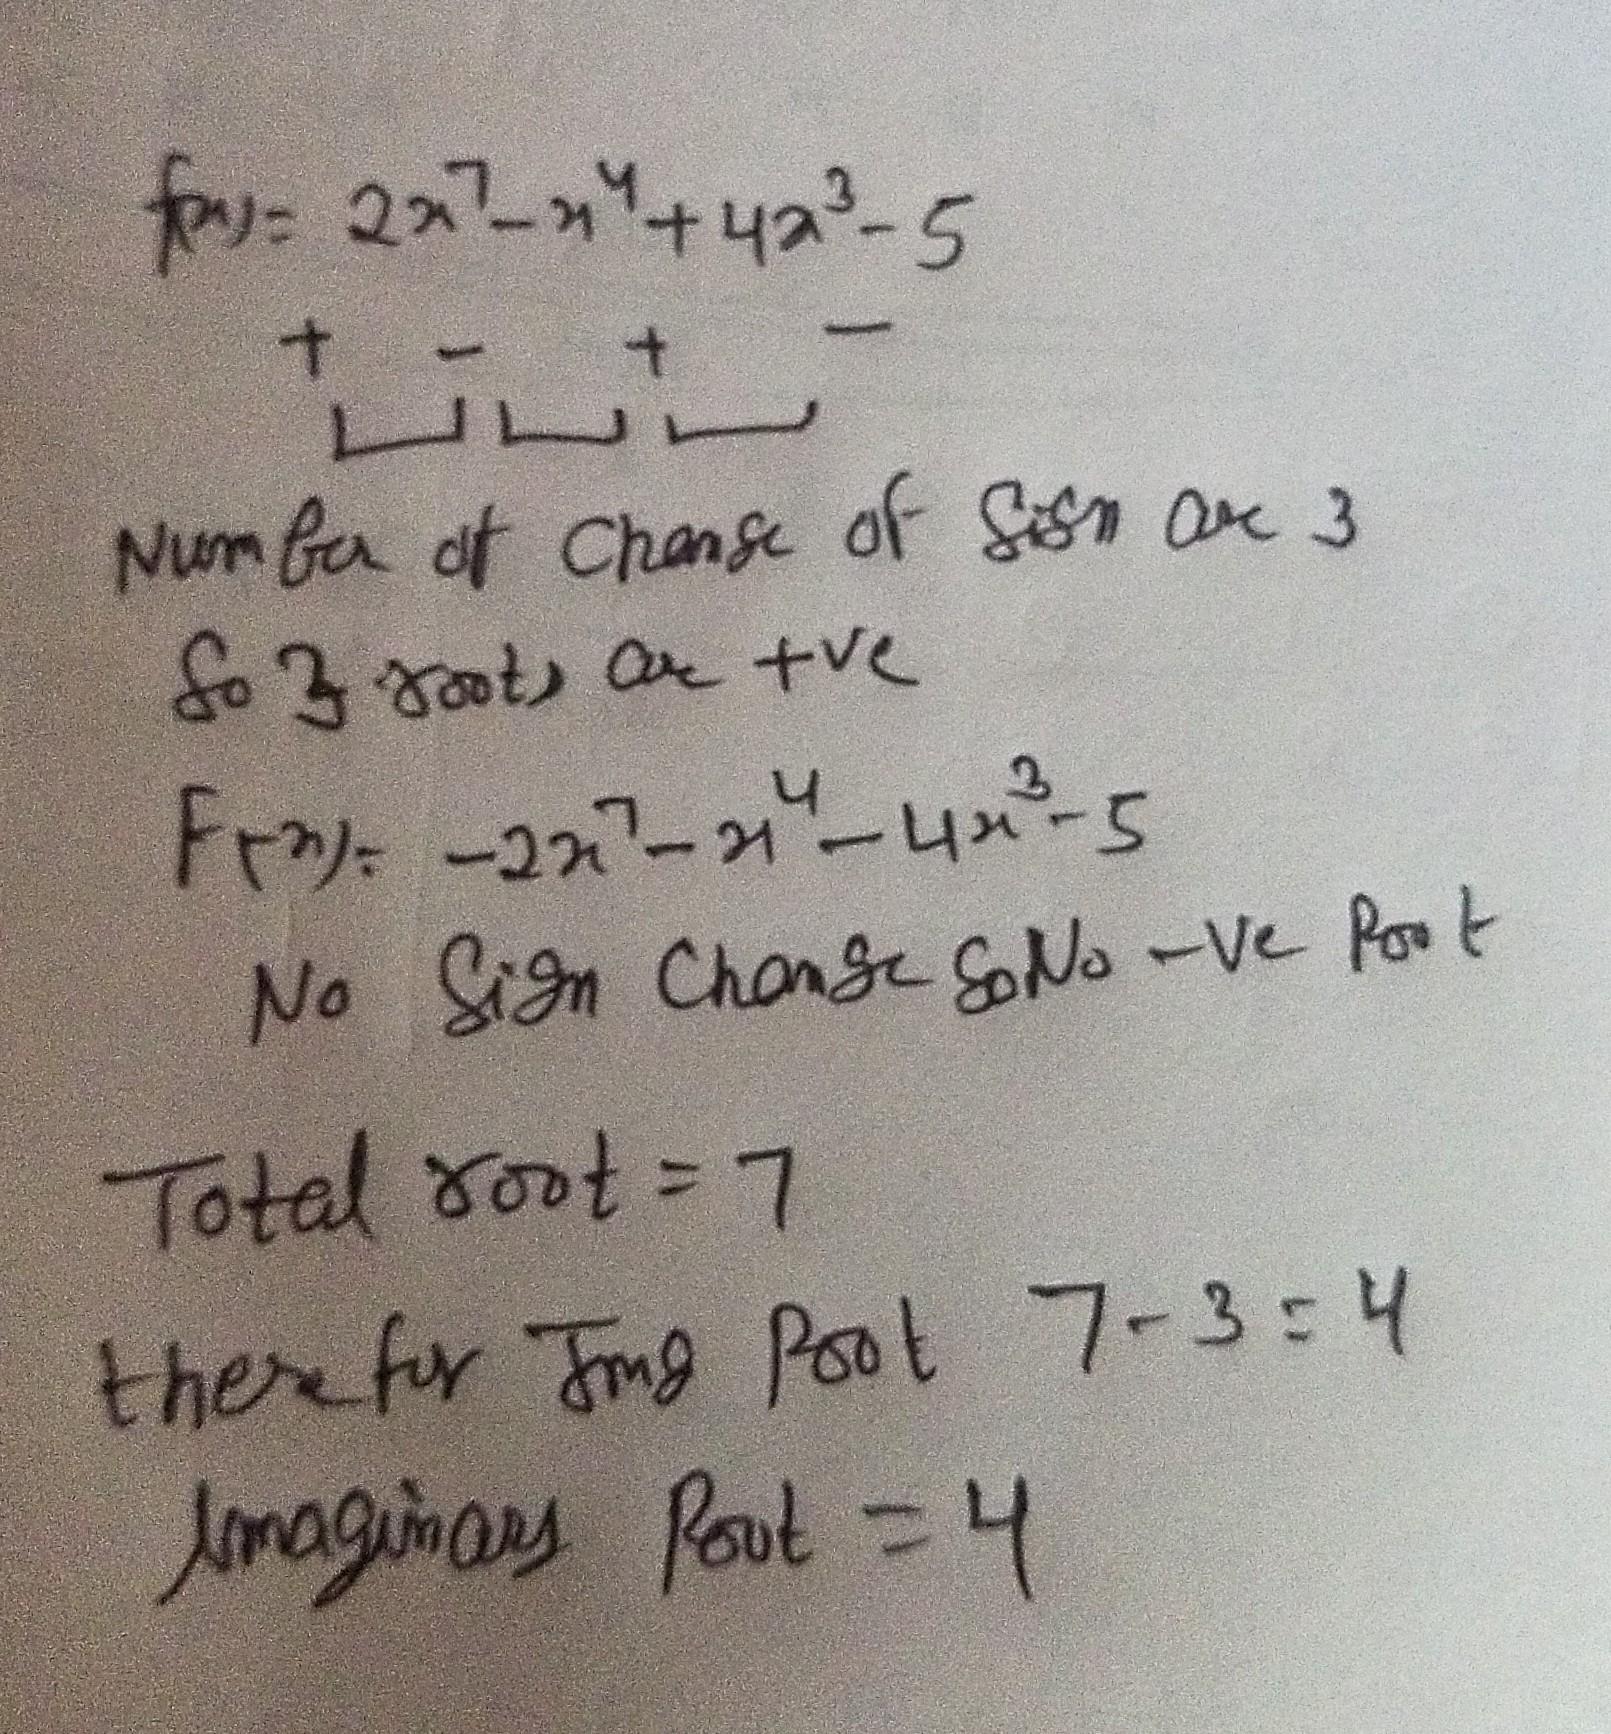 f(x)= 2x⁷-x⁴+4x³-5
+ - + -
Number of Change of Sign are 3
So 3 roots are +ve
F(-x)= -2x⁷-x⁴-4x³-5
No Sign Change So No -ve Root
Total root = 7
therefor Img Root 7-3=4
Imaginary Root = 4